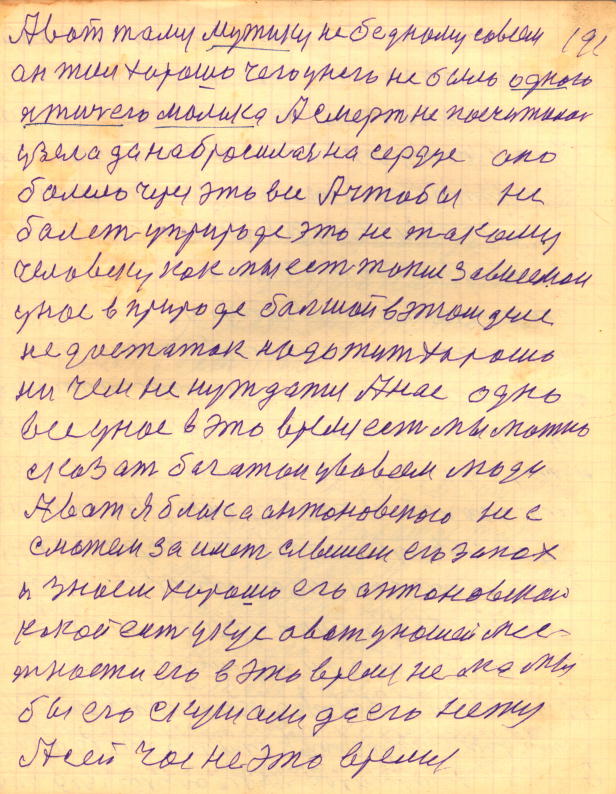 А вот тому мужику не бедному совсем 191
он жил хорошо чего у него не было одного
птичего молока А смерт не посчиталас
взела да набросилася на сердце оно
болело чуи это все А чтобы не
болет у природе это не такому
человеку как мы ест тоже зависемои
у нас в природе балшой в этом деле
не достаток надо жит хорошо
ни чем не нуждатя А нас одно
все у нас в это время ест мы можно
сказат багатои у во всем люди
А вот Яблока антоновского не с
сможем за имет слышем его запох
и знаем хорошо его антоновскои
какой ест укус а вот у нашей мес-
тности его в это время не-ма мы
бы его скушали да его нету
А сей час не это время